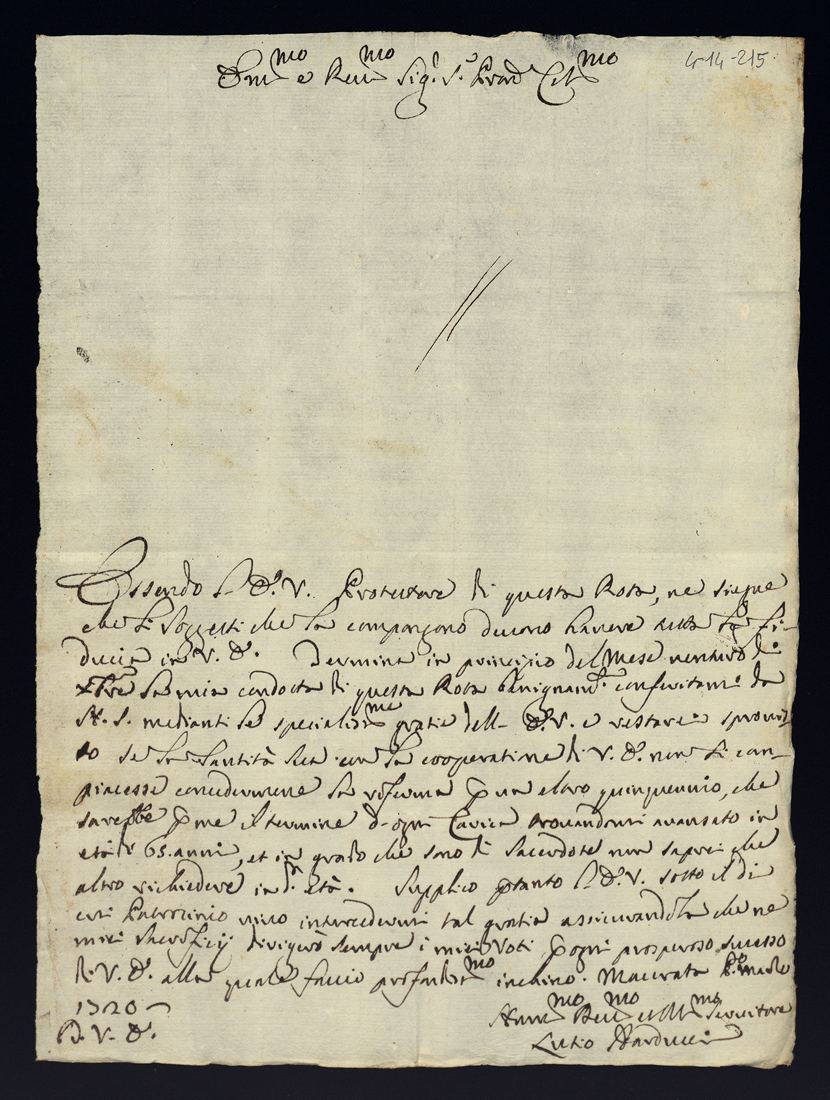 4-14-215
Em.mo e Rev.mo Sig.r S.r Pron Col.mo
Essendo l' E.V. Protettore di questa Rota, ne siegue
che li Soggetti che la compongono devono havere tutta la fi-
ducia in V.E. Termina in principio del Mese venturo di
la mia condotta di questa Rota benignam.te conferitami da
N.S. mediante le specialissime gratie dell' E.V. e restarei sprovis-
to se la Santità Sua con la cooperatione di V.E. non si com-
piacesse concedermene la rifferma per un altro quinquennio, che
sarebbe per me il termine d'ogni Carica trovandomi avansato in
età di 65. anni, et in grado che sono di Sacerdote non saprei che
altro richiedere in d.a età. Supplico per tanto l' E.V. sotto il di
cui Patrocinio vivo intercedermi tal gratia assicurandola che ne
miei Sacrificij divigerò sempre i miei Voti per ogni prosperoso successo
di V.E. alla quale faccio profondiss.mo inchino. Macerata P.mo
1720
D. V. E.
Hum.mo Dev.mo et Obl.mo Servitore
Lutio Narducci